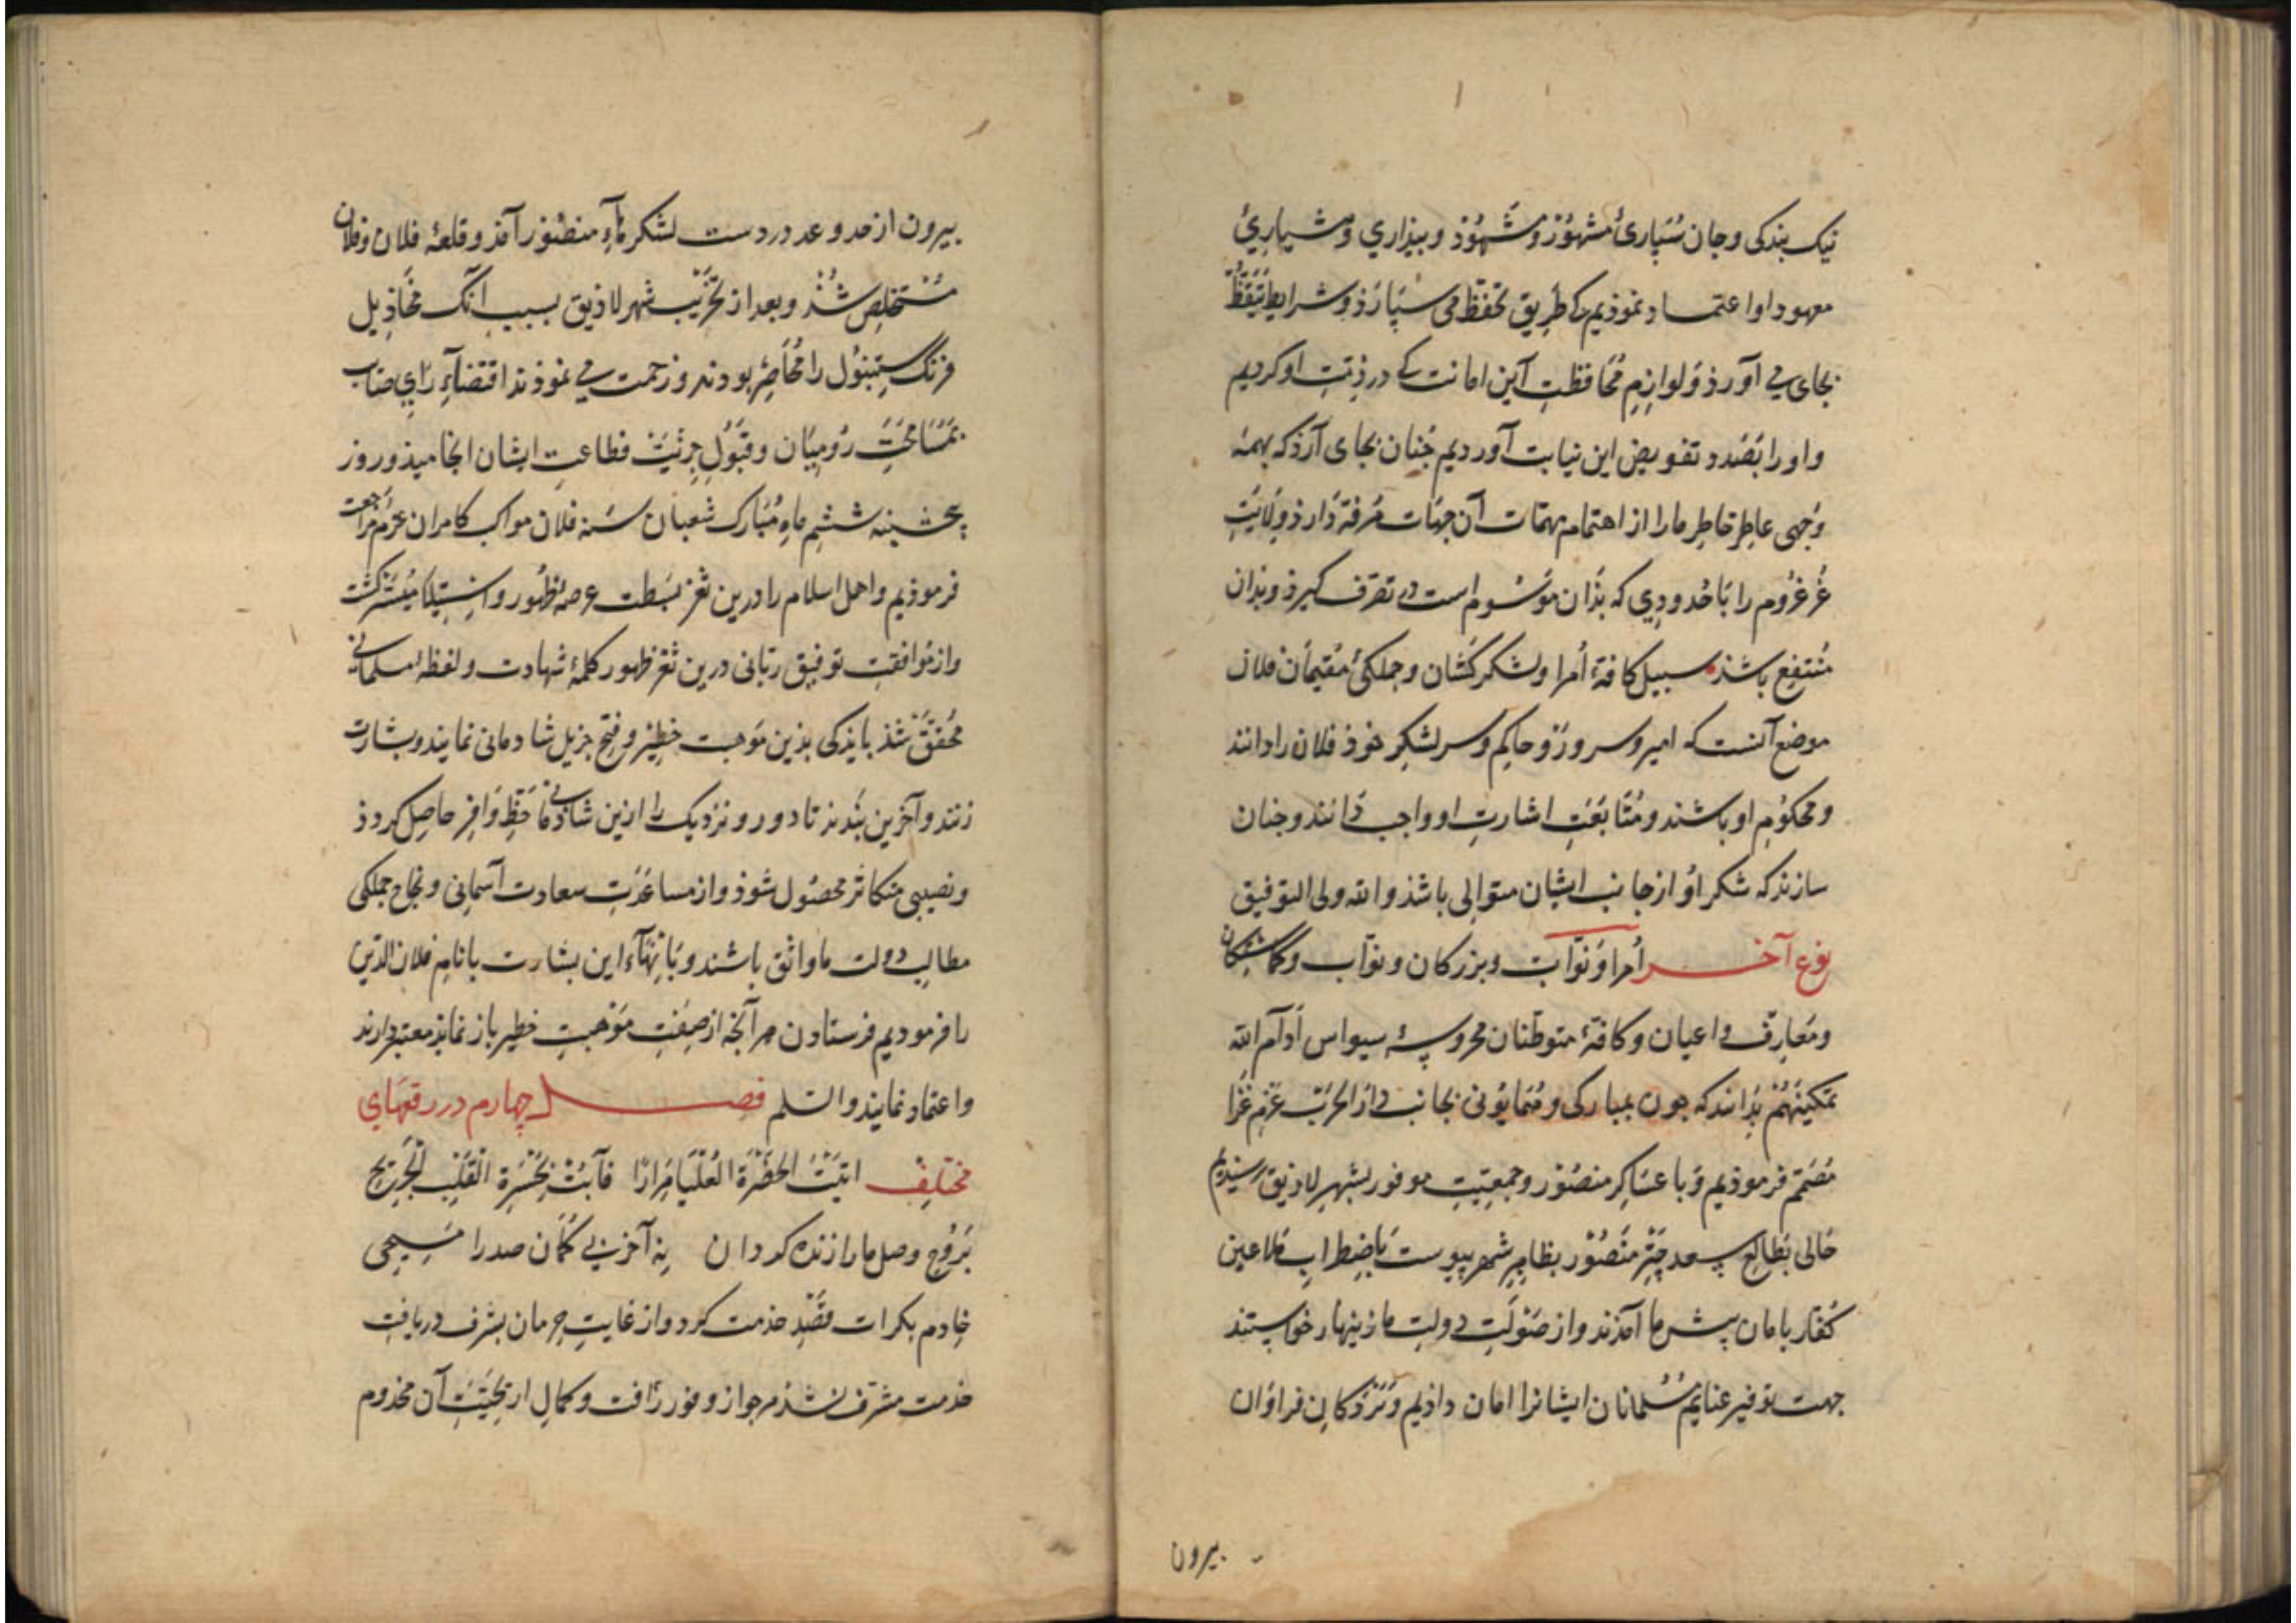 نیک بندکی وجان سُپاریٔ مشهوُر ومَشهُوْذ وبیذاری وهشیاریٔ
معهود او اعتماد نموذیم تا طریق تحفظ می سپارَذ وشرایط تَیَقّظ
بجای می آورذ ولوازمِ مُحَافظتِ آین امانت که در ذمّتِ او کردیم
واورا بَصَدد تفویض این نیابت آوردیم جُنان بجای آرَذ که بهمهٔ
وُجهی عاطِر خاطِر مارا از اهتمام مهمّات آن جهات مرفّه دَارذ ووِلایَتِ
غُرغُروُم را بَاحُدودِی که بدَان مَوسُوم است در تصرّف کیرذ وبذان
مُنتفِع باشذ سبیل کافهٔ اُمرا ولشکرکَشان وجملکیٔ مُقیمان فلان
موضع آنست که امیر وسرور وحاکِم وسرلشکِر خوذ فلان را دانند
ومحکُومِ او باشند ومُتَابَعَتِ اشارتِ او واجب دَانند وجنان
سازند که شکر اُو از جانب ایشان متوالی باشذ والله ولی التوفیق
نوع آخر اُمرا ونوّاب وبزرکان ونوّاب وکماشتکان
ومَعارِف واعیان وکافّهٔ متوطّنان محروسهٔ سیواس اَدآم الله
تمکینَهُمْ بدانند که جون بمبارکی وهُمایُونی بجانب دار الحَرب عَزمِ غزا
مُصَمّم فرموذیم وَبا عسَاکرِ منصُوْر وجمعیّتِ موفور بشهرِ لاذیق رسیذیم
حَالی بَطالِعِ سعد چترِ منصُوْر بظاهِرِ شهر پیوست بَاضِطرابِ ملاعین
کُفّار بامان پیش ما آمَذند واز صَوْلَتِ دولتِ ما زینهار خواستند
جهت توفیرِ غنایِم مُسُلمانان ایشانرا امان داذیم ونُزوُکانِ فراوَان
بیرون
بیرون از حد وعد در دست لشکر ماءِ منصُور آمذ وقلعهٔ فلان وفلان
مُسْتخلِص شُذ وبعد از تخرِیْبِ شهر لاذیق بسبب آنک مخَاذِیل
فرنک ستنبُول را مُحَاصِرْ بودند وزحمت می نموذند اقتضاءِ رَایِ صَایب
بمُسَامَحَتِ رُومیَان وقبُولِ جزیَت وطاعتِ ایشان انجامیذ وروز
پنجشنبه ششمِ ماهِ مُبارک شعبان سَنه فلان مواکب کامران عزم مراجعت
فرموذیم واهل اسلام را درین ثغر بَسْطت عرصهٔ ظهُور واستِیلا مُیَسّر کشت
واز مُوافقتِ توفیق ربّانی درین ثغر ظهور کلمهٔ شهادت ولفظهٔ مسلمانی
مُحَققّ شذ بایذکی بذین موهبت خطِیر وفتح جزیل شادمانی نمایند وبشارت
زنند وآخرین بَندند تا دور ونزدیک را ازین شاذمانی حَظّ وَافِر حاصِل کردذ
ونصیبی متکاثر محصُول شوذ واز مساعَدَتِ سعادت آسمانی ونجاح جملکی
مطالبِ دولت ما واثق باشند وبَانهآءِ این بشارت بانامِ فلان الدّین
را فرمودیم فرستادن هر آنچه از صِفتِ مَوْهِبتِ خطیر باز نماید معتبر دارند
واعتماد نمایند والسّلم فصل چهارم در رقعهاى
مختَلِفْ اتَیْتُ الحَضْرَةَ العُلْیَا مِرَارًا فَاَبْتُ بحَسْرَةِ القَلْبِ الْجَریحِ
بَرُوحِ وصل مارا زنده کردان نه آخر بی کُمان صدرا مَسِیحی
خادم بکرات قصْدِ خدمت کرد واز غایتِ حِرمان بشرف دریافتِ
خذمت مشرّف نشذ مرجو از وفور رَافت وکمالِ اریَحِیّتِ آن مخدوم